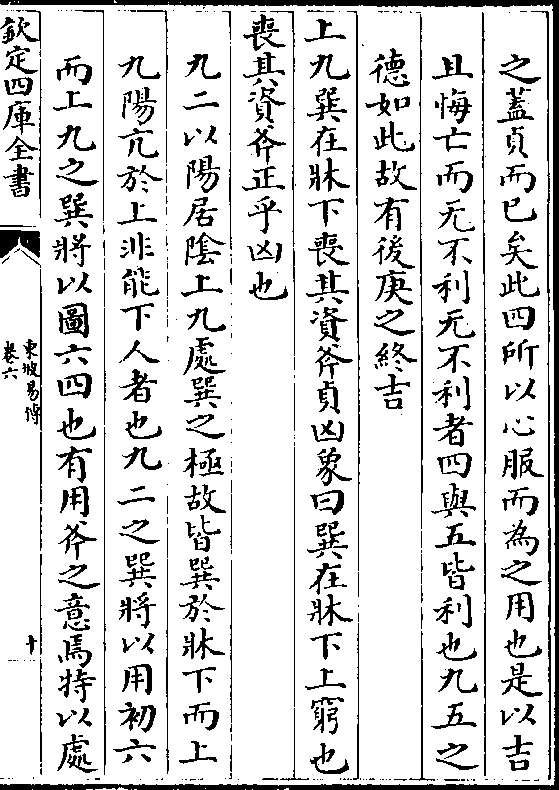 之蓋貞而已矣此四所以心服而為之用也是以吉
且悔亡而无不利无不利者四與五皆利也九五之
德如此故有後庚之終吉
上九巽在牀下喪其資斧貞凶象曰巽在牀下上窮也
喪其資斧正乎凶也
九二以陽居陰上九處巽之極故皆巽於牀下而上
九陽亢於上非能下人者也九二之巽將以用初六
而上九之巽將以圖六四也有用斧之意焉特以處
欽定四庫全書
東坡易傳
卷六
十